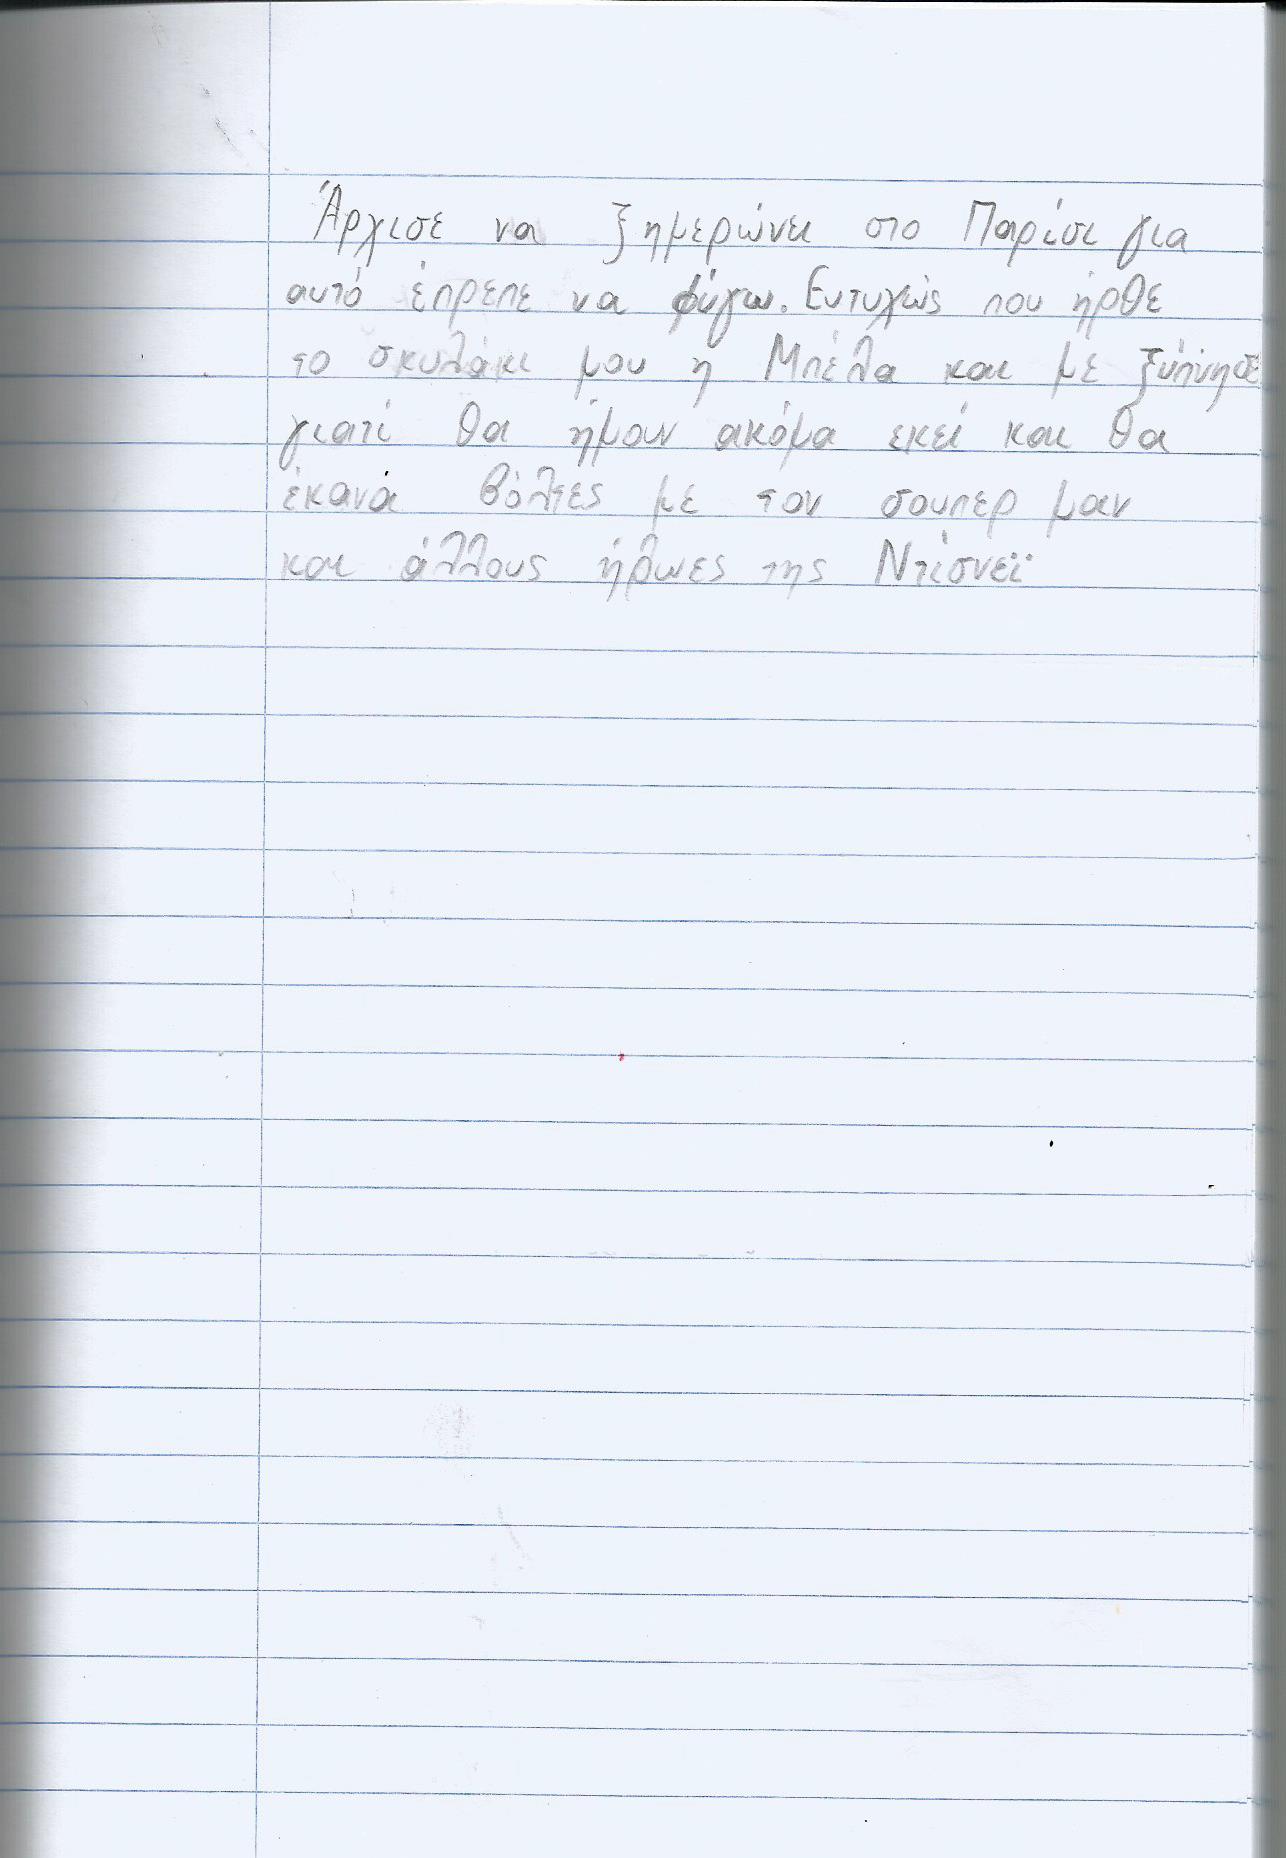 Άργισε να ξημερώνει στο Παρίσι για
αυτό έπρεπε να φύγω. Ευτυχώς που ήρθε
το σκυλάκι μου η Μπέλα και με ξύπνησε
γιατί θα ήμουν ακόμα εκεί και θα
έκανά βόλτες με τον σουπερ μαν
και άλλους ήρωες της Ντίσνεϊ